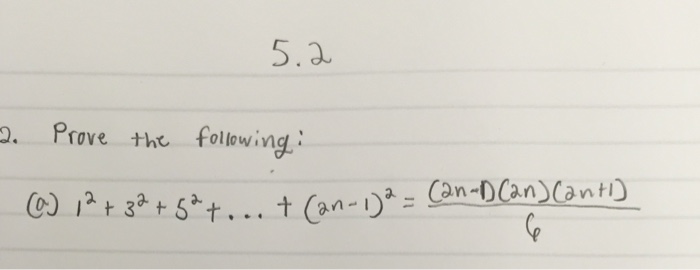 5.2
2. Prove the following:
(a) 1² + 3² + 5² + ... + (2n-1)² = (2n-1)(2n)(2n+1)
6